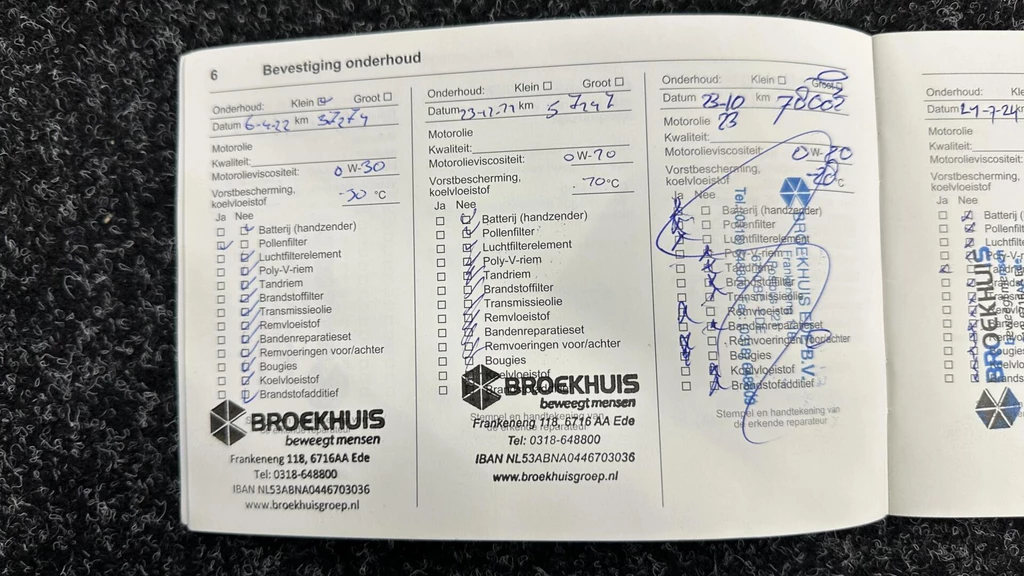 6 Bevestiging onderhoud
Onderhoud: Klein Groot
Datum 6-4-22 km 37274
Motorolie
Kwaliteit:
Motorolieviscositeit: 0 W-30
Vorstbescherming,
koelvloeistof -30 °C
Ja Nee
Batterij (handzender)
Pollenfilter
Luchtfilterelement
Poly-V-riem
Tandriem
Brandstoffilter
Transmissieolie
Remvloeistof
Bandenreparatieset
Remvoeringen voor/achter
Bougies
Koelvloeistof
Brandstofadditief
BROEKHUIS
beweegt mensen
Frankeneng 118, 6716AA Ede
Tel: 0318-648800
IBAN NL53ABNA0446703036
www.broekhuisgroep.nl
Onderhoud: Klein Groot
Datum 23-12-22 km 57247
Motorolie
Kwaliteit:
Motorolieviscositeit: 0 W-20
Vorstbescherming,
koelvloeistof °C
Ja Nee
Batterij (handzender)
Pollenfilter
Luchtfilterelement
Poly-V-riem
Tandriem
Brandstoffilter
Transmissieolie
Remvloeistof
Bandenreparatieset
Remvoeringen voor/achter
Bougies
Koelvloeistof
BROEKHUIS
beweegt mensen
Stempel en handtekening van
de erkende reparateur
Frankeneng 118, 6716 AA Ede
Tel: 0318-648800
IBAN NL53ABNA0446703036
www.broekhuisgroep.nl
Onderhoud: Klein Groot
Datum 23-10 km
Motorolie 23
Kwaliteit:
Motorolieviscositeit: 0 W-20
Vorstbescherming,
koelvloeistof °C
Ja Nee
Batterij (handzender)
Pollenfilter
Luchtfilterelement
Poly-V-riem
Tandriem
Brandstoffilter
Transmissieolie
Remvloeistof
Bandenreparatieset
Remvoeringen voor/achter
Bougies
Koelvloeistof
Brandstofadditief
BROEKHUIS EDE B.V.
Stempel en handtekening van
de erkende reparateur
Onderhoud: Kle
Datum 24-7-24
Motorolie
Kwaliteit:
Motorolieviscosite
Vorstbescherming,
koelvloeistof
Ja Nee
Batterij (
Pollenfilt
Luchtfilte
BROEKHUIS